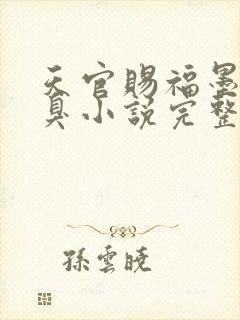 天官賜福墨
真小說完整
孫雲曉